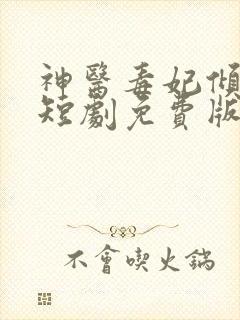 神醫毒妃傾
短劇免費版
不會喫火鍋